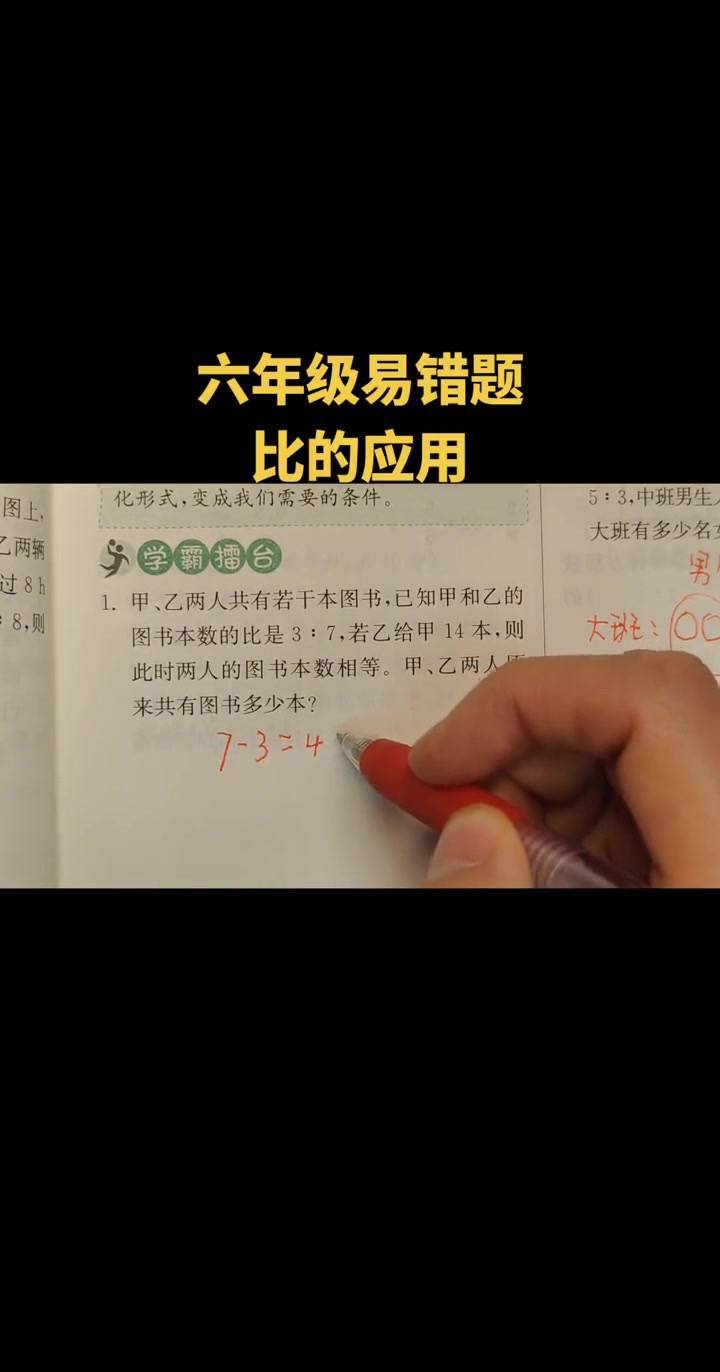 六年级易错题
比的应用
图上,
乙两辆
过 8 h
∶8,则
化形式,变成我们需要的条件。
学霸擂台
1. 甲、乙两人共有若干本图书,已知甲和乙的
图书本数的比是 3∶7,若乙给甲 14 本,则
此时两人的图书本数相等。甲、乙两人原
来共有图书多少本?
7-3=4
5∶3,中班男生
大班有多少名
男
大班: